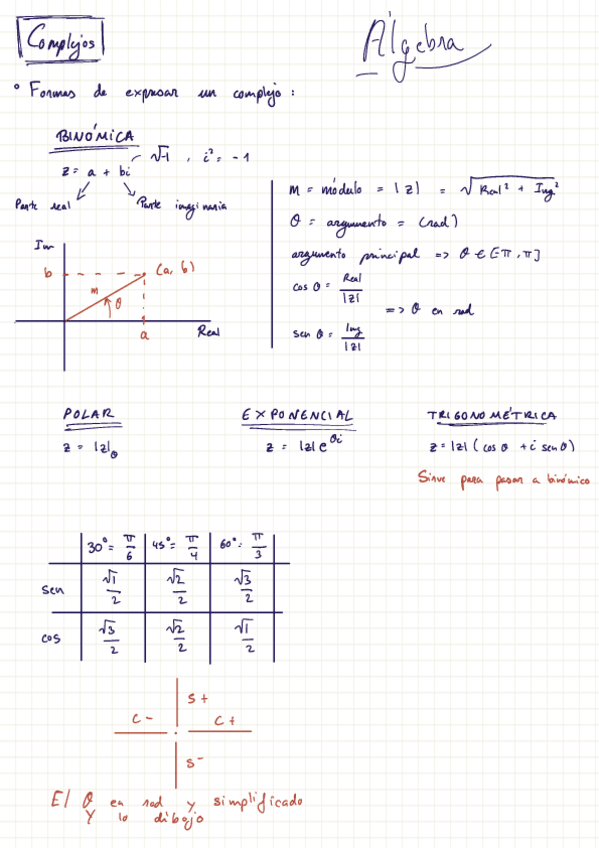 Complejos
Álgebra
° Formas de expresar un complejo:
BINÓMICA
z = a + bi
√-1 , i² = -1
Parte real
Parte imaginaria
Im
b
(a, b)
m
θ
a
Real
m = módulo = |z| = √Real² + Img²
θ = argumento = (rad)
argumento principal => θ ∈ [-π, π]
cos θ = Real/|z|
=> θ en rad
sen θ = Img/|z|
POLAR
z = |z|θ
EXPONENCIAL
z = |z| e^θi
TRIGONOMÉTRICA
z = |z| (cos θ + i sen θ)
Sirve para pasar a binómico
30° = π/6 45° = π/4 60° = π/3
sen √1/2 √2/2 √3/2
cos √3/2 √2/2 √1/2
S +
C - C +
S -
El θ en rad y simplificado
Y lo dibujo